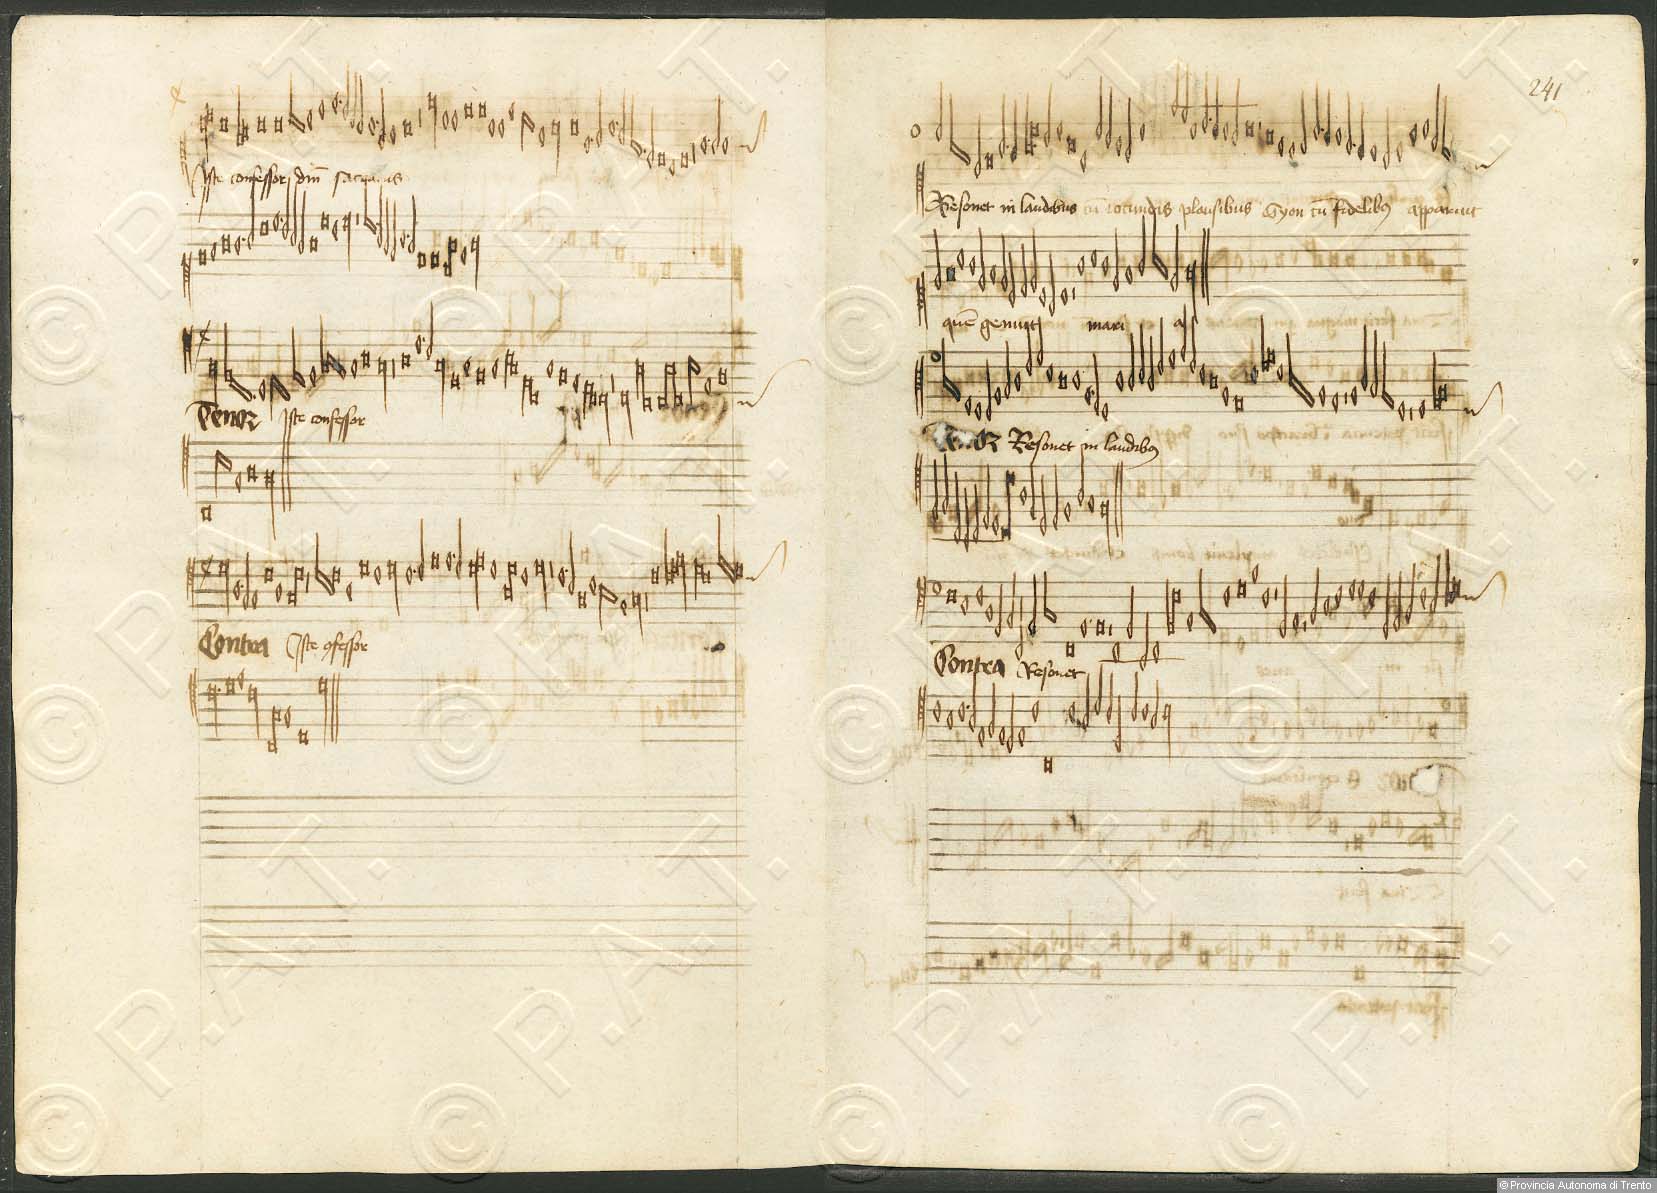 Iste confessor dni sacratus
Tenor Iste confessor
Contra Iste cfessor
241
Resonet in laudibus cu iocundis plausibus Syon cu fidelibus apparuit
que genuit mari a
Tenor Resonet in laudibus
Contra Resonet
© Provincia Autonoma di Trento
© P.A.T.